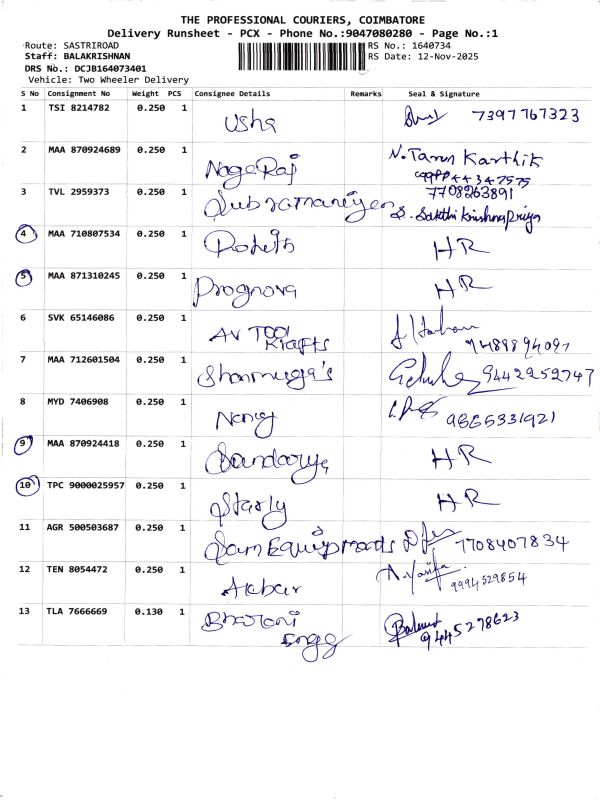 THE PROFESSIONAL COURIERS, COIMBATORE
Delivery Runsheet - PCX - Phone No.:9047080280 - Page No.:1
Route: SASTRIROAD RS No.: 1640734
Staff: BALAKRISHNAN RS Date: 12-Nov-2025
DRS No.: DCJB164073401
Vehicle: Two Wheeler Delivery
S No Consignment No Weight PCS Consignee Details Remarks Seal & Signature
1 TSI 8214782 0.250 1 Usha 7397767323
2 MAA 870924689 0.250 1 NagaRaj N. Tarun Karthik
3 TVL 2959373 0.250 1 Subramaniyen 7708263891
S. Sakthi Krishna Priya
4 MAA 710807534 0.250 1 HR
5 MAA 871310245 0.250 1 Prognova HR
6 SVK 65146086 0.250 1 AV TOOL
Krafts
7 MAA 712601504 0.250 1 Shanmuga's 9442952747
8 MYD 7406908 0.250 1 Nancy 9865331921
9 MAA 870924418 0.250 1 Soundarya HR
10 TPC 9000025957 0.250 1 Starly HR
11 AGR 500503687 0.250 1 Sam Equipments 7708407834
12 TEN 8054472 0.250 1 Akbar 9994529854
13 TLA 7666669 0.130 1 Bharani
Engg 9445298623